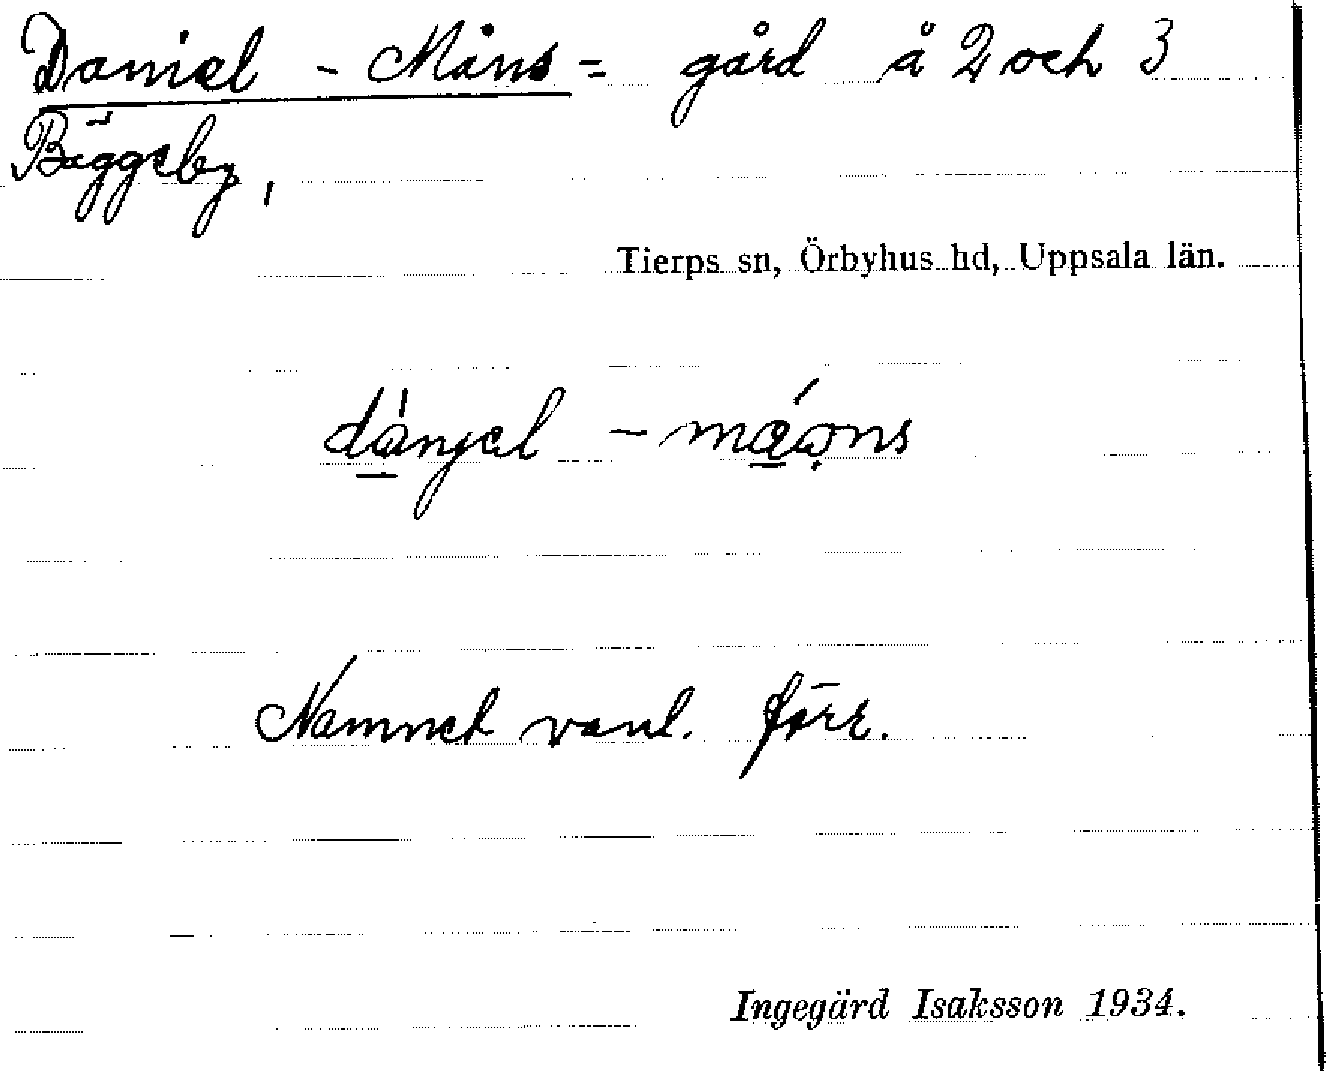 Daniel - Måns = gård å 2 och 3
Bäggeby,
Tierps sn, Örbyhus hd, Uppsala län.
dànjəl - mǽɷ̣ns
Namnet vanl. förr.
Ingegärd Isaksson 1934.